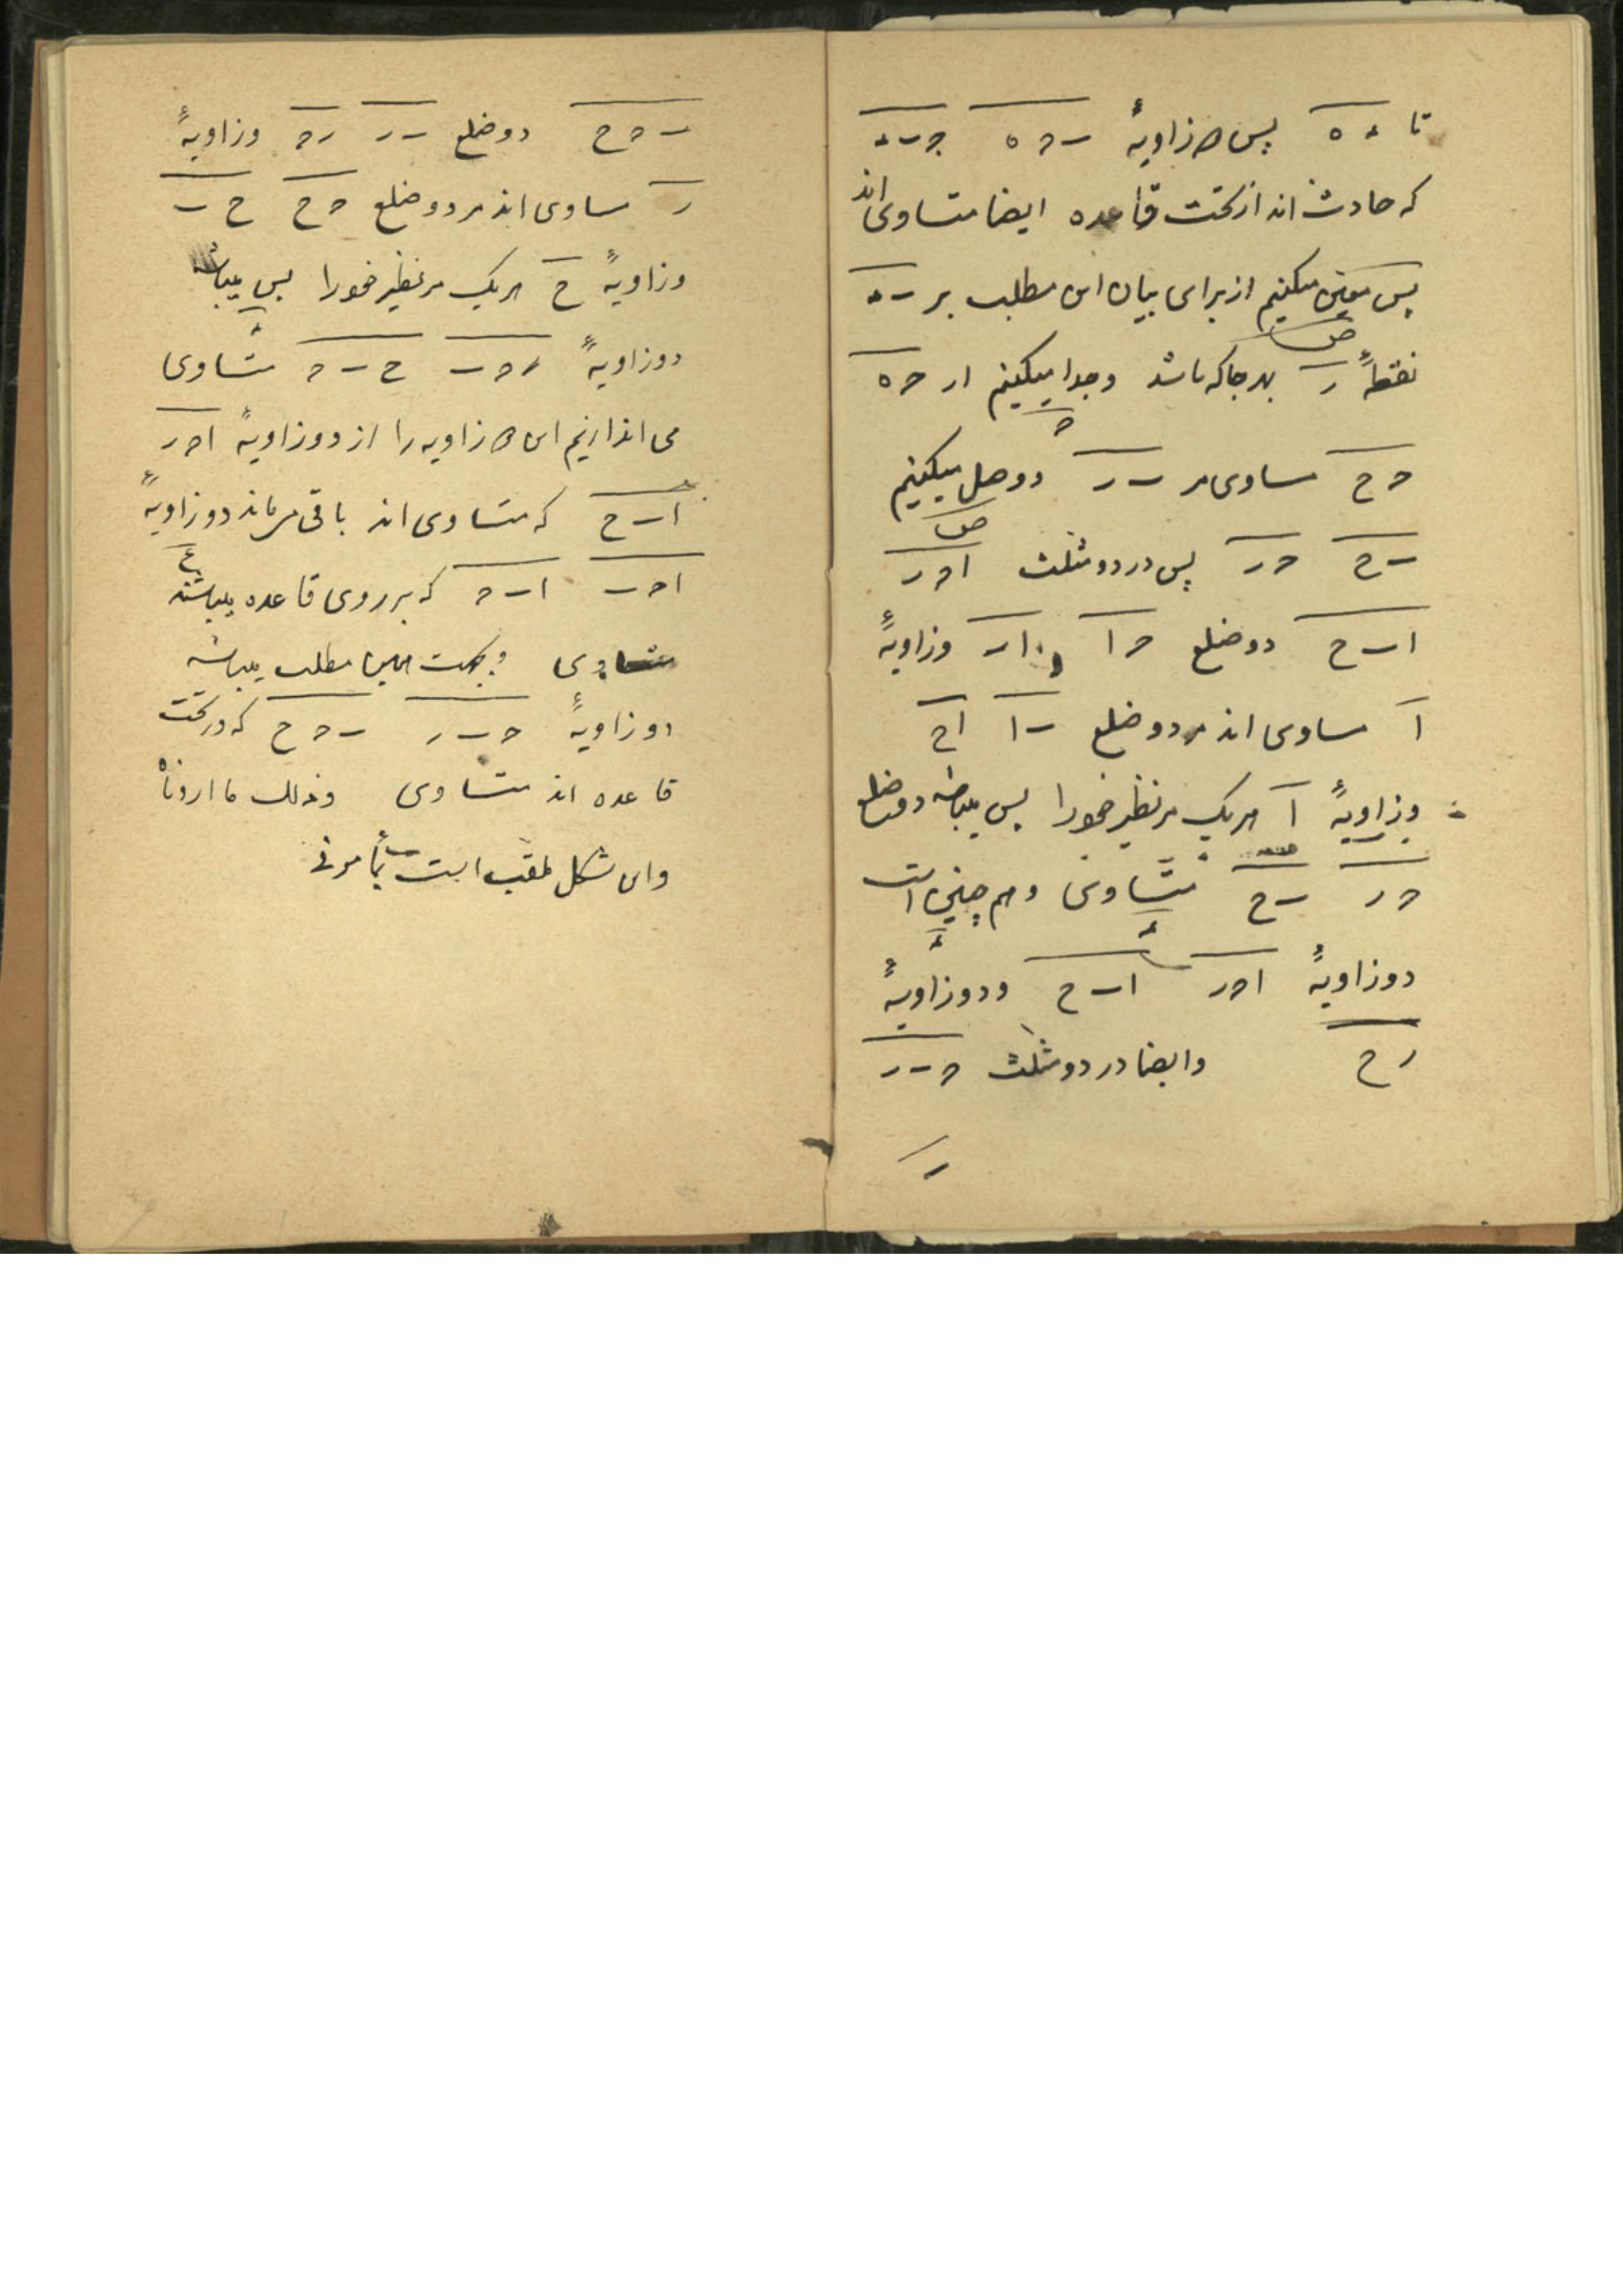 تا ء ه پس دو زاویهٔ ب ح ه ح ب ء
که حادث اند از تحت قاعده ایضا متساوی اند
پس معین میکنیم از برای بیان این مطلب بر ب ء
نقطهٔ ر بهر جا که باشد و جدا میکنیم از ح ه
ح ح مساوی مر ب ر و وصل میکنیم
ب ح ح ر پس در دو مثلث ا ح ر
ا ب ح دو ضلع ح ا ا ر وزاویهٔ
ا مساوی اند مر دو ضلع ب ا ا ح
وزاویهٔ ا هر یک مر نظیر خود را پس میباشد دو ضلع
ح ر ب ح متساوی و هم چنین است
دو زاویهٔ ا ح ر ا ب ح و دو زاویهٔ
ر ح و ایضا در دو مثلث ح ب ر
ب ح ح دو ضلع ب ر ر ح وزاویهٔ
ر مساوی اند مر دو ضلع ح ح ح ب
وزاویهٔ ح هر یک مر نظیر خود را پس میباشد
دو زاویهٔ ر ح ب ح ب ح متساوی
می اندازیم این دو زاویه را از دو زاویهٔ ا ح ر
ا ب ح که متساوی اند باقی میماند دو زاویهٔ
ا ح ب ا ب ح که بر روی قاعده میباشند
متساوی و بجهت همین مطلب میباشد
دو زاویهٔ ح ب ر ب ح ح که در تحت
قاعده اند متساوی وذلک ما اردناه
واین شکل ملقب است بمأمونی